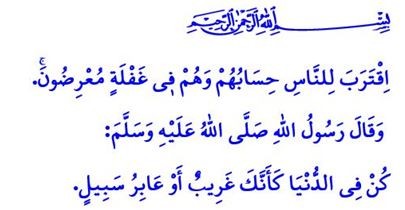 بِسْمِ اللهِ الرَّحْمٰنِ الرَّحِيمِ
اِقْتَرَبَ لِلنَّاسِ حِسَابُهُمْ وَهُمْ فِى غَفْلَةٍ مُعْرِضُونَۚ.
وَقَالَ رَسُولُ اللهِ صَلَّى اللهُ عَلَيْهِ وَسَلَّمَ:
كُنْ فِى الدُّنْيَا كَأَنَّكَ غَرِيبٌ أَوْ عَابِرُ سَبِيلٍ.